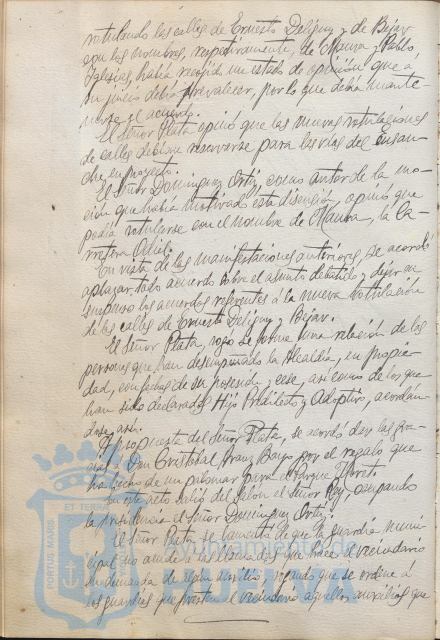 rotulando las calles de Ernesto Deligny y de Béjar
con los nombres, respectivamente, de Maura y Pablo
Iglesias, había recogido un estado de opinión que a
su juicio debía prevalecer, por lo que debía mante-
nerse el acuerdo.
El Señor Plata opinó que las nuevas rotulaciones
de calles debían reservarse para las vías del Ensan-
che en proyecto.
El Señor Domínguez Ortiz, como autor de la mo-
ción que había motivado esta discusión, opinó que
podía rotularse con el nombre de Maura, la Ca-
rretera Odiel.
En vista de las manifestaciones anteriores, se acordó
aplazar todo acuerdo sobre el asunto debatido y dejar en
suspenso los acuerdos referentes a la nueva rotulación
de las calles de Ernesto Deligny y Béjar.
El Señor Plata, rogó se forme una relación de las
personas que han desempeñado la Alcaldía, en propie-
dad, con fechas de su posesión y cese, así como de los que
han sido declarados Hijo Predilecto y Adoptivo, acordán-
dose así.
A propuesta del Señor Plata, se acordó dar las gra-
cias a Don Cristóbal Bayo por el regalo que
ha hecho de un palomar para el Parque Moret.
En este acto salió del Salón el Señor Rey, ocupando
la presidencia el Señor Domínguez Ortiz.
El Señor Plata se lamenta de que la guardia muni-
cipal no acude a las llamadas que hace el vecindario
en demanda de algún auxilio, rogando que se ordene á
los guardias que presten al vecindario aquellos auxilios que
PORTUS MARIS ET TERRAE
Ayuntamiento de
HUELVA